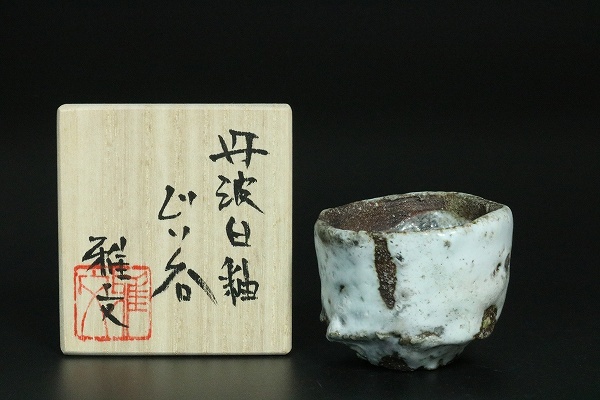 丹波白釉
ぐい呑
雅文